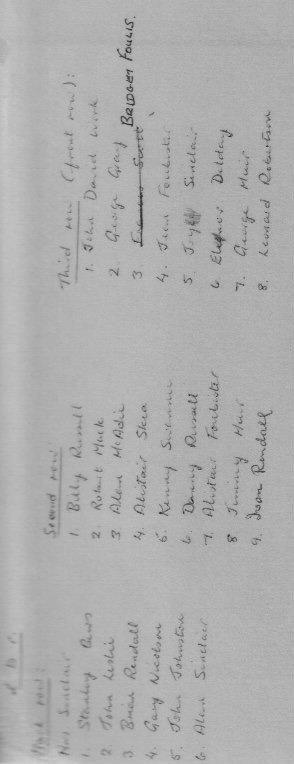 L to R
Back row:
Mrs Sinclair
1. Stanley
2. John Leslie
3 Brian Rendall
4. Gary Nicolson
5. John Johnston
6. Alan Sinclair
Second row:
1 Billy Russell
2. Robert Muck
3 Alan McAdie
4. Alistair Skea
5. Kenny
6. Danny Russell
7. Alistair Foubister
8 Jimmy Muir
9. Ivan Rendall
Third row (front row):
1. John David Work
2. George Gray
3 BRIDGET FOULIS.
4. Foubister
5 Sinclair
6 Eleanor Delday
7. George Muir
8. Leonard Robertson